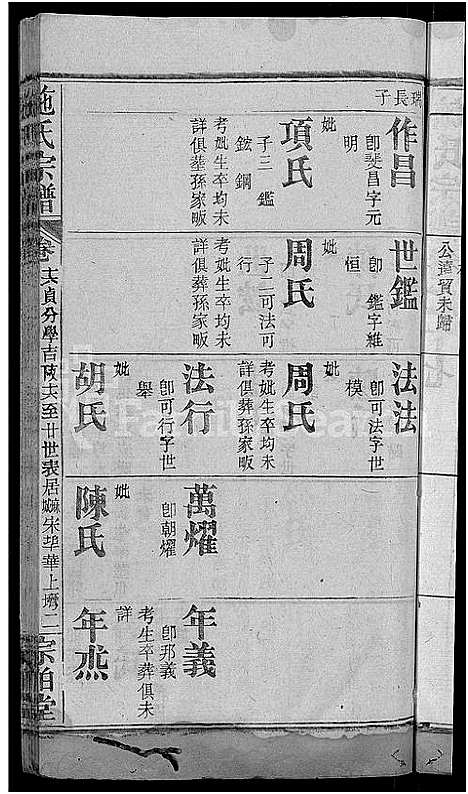 公達質未歸
瑞長子
作昌
即斐昌字元
明
妣
項氏
子三 鑑
鋐 鋼
考妣生卒均未
詳俱葬孫家畈
世鑑
即 鑑字維
恒
妣
周氏
子二可法可
行
考妣生卒均未
詳俱葬孫家畈
法法
即可法字世
模
妣
周氏
考妣生卒均未
詳俱葬孫家畈
法行
即可行字世
舉
妣
胡氏
萬燿
即朝燿
妣
陳氏
年義
即邦義
考生卒葬俱未
詳
年𤇆
施氏宗譜
卷十六貞分學吉陵十六至廿世表居蔴宋埠華上壪 二
宗伯堂
FamilySearch